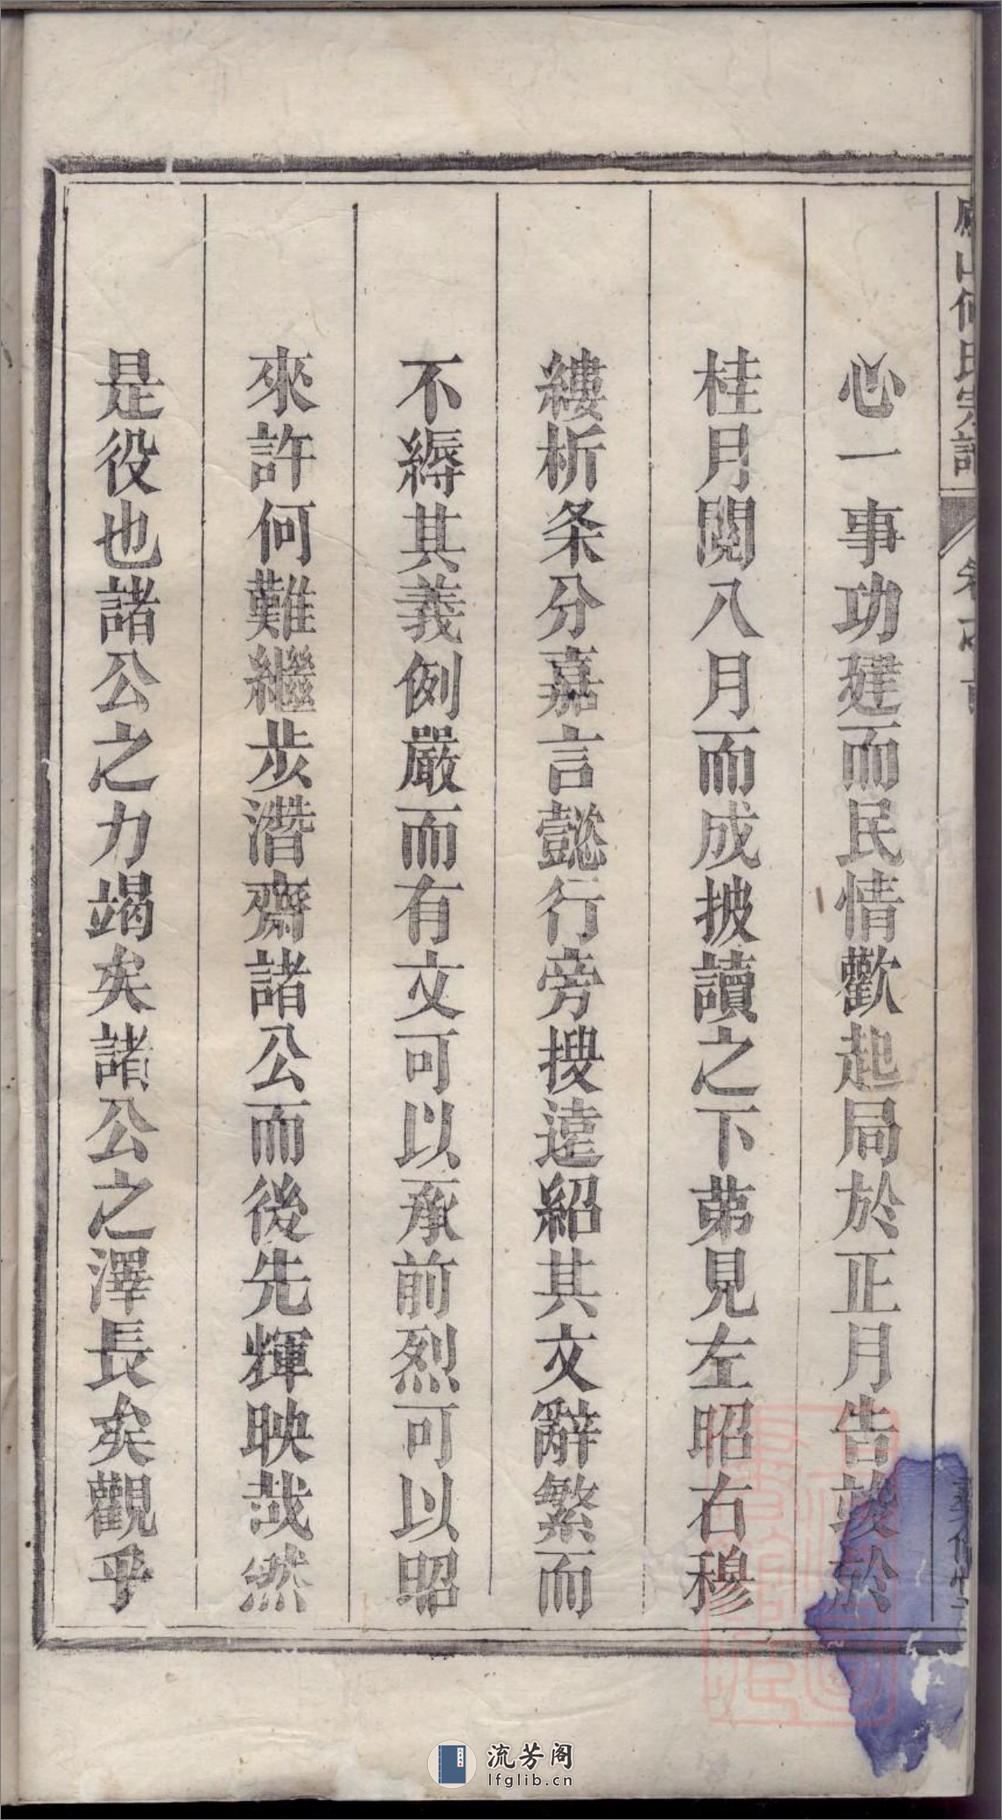 心一事功建而民情歡起局於正月告竣於
桂月閱八月而成披讀之下苐見左昭右穆
縷析条分嘉言懿行旁搜遠紹其文辭繁而
不縟其義例嚴而有文可以承前烈可以昭
來許何難繼步潛齋諸公而後先輝映哉然
是役也諸公之力竭矣諸公之澤長矣觀乎
流芳阁
lfglib.cn